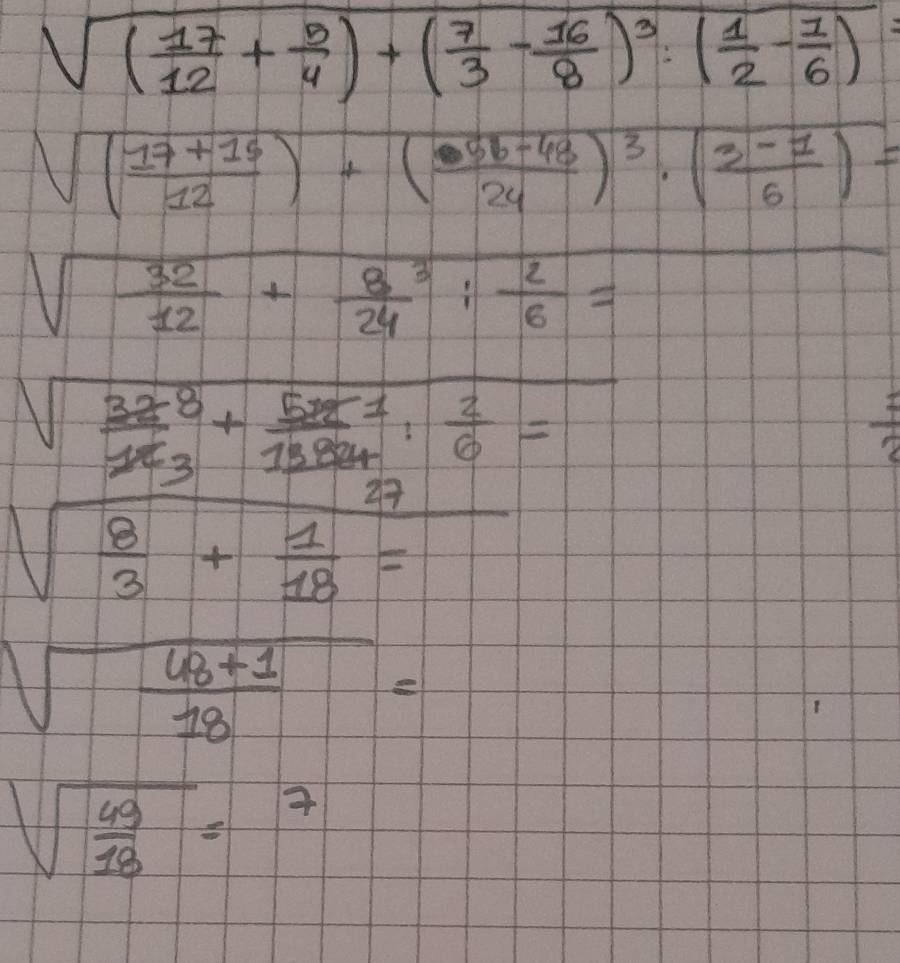 √((17/12 + 5/4) + (7/3 - 16/8)³ : (1/2 - 1/6)) =
√((17 + 15)/12) + ((56 - 48)/24)³ : ((3 - 1)/6) =
√(32/12 + 8/24³ : 2/6) =
√(32/12 8/3 + 512/13824 1/27 : 2/6 =
√(8/3 + 1/18) =
√((48 + 1)/18) =
√(49/18) = 7